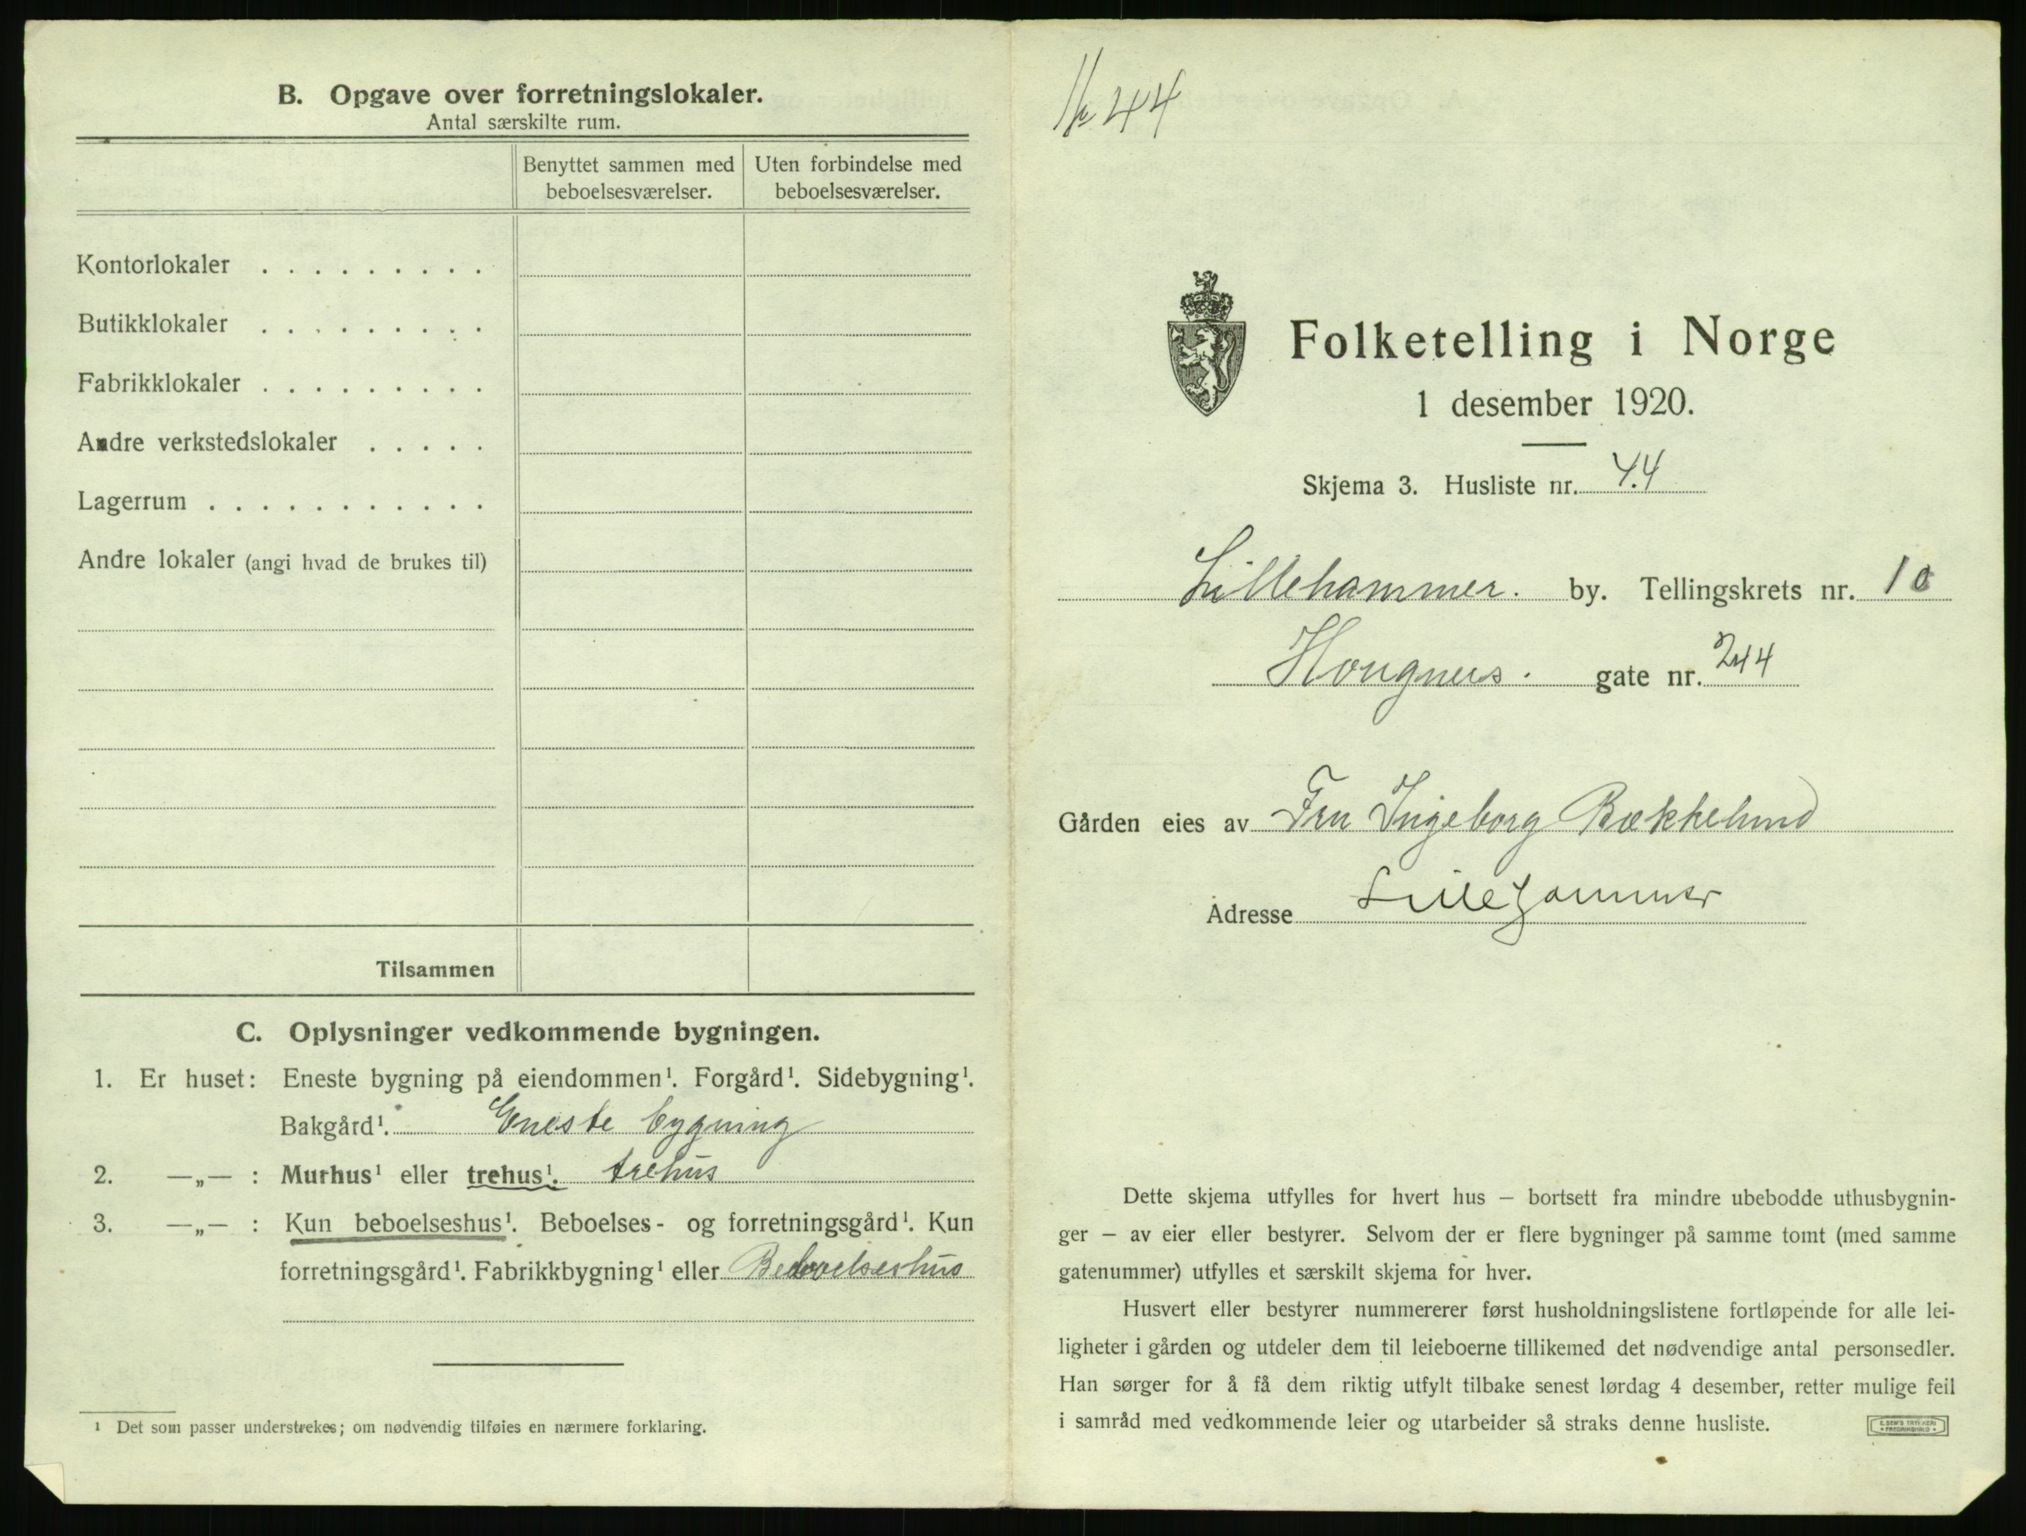 B. Opgave over forretningslokaler.
Antal særskilte rum.
Benyttet sammen med beboelsesværelser.
Uten forbindelse med beboelsesværelser.
Kontorlokaler . . . . . . . . .
Butikklokaler . . . . . . . . .
Fabrikklokaler . . . . . . . . .
Andre verkstedslokaler . . . . .
Lagerrum . . . . . . . . . . .
Andre lokaler (angi hvad de brukes til)
Tilsammen
C. Oplysninger vedkommende bygningen.
1. Er huset: Eneste bygning på eiendommen¹. Forgård¹. Sidebygning¹.
Bakgård¹. Eneste bygning
2. —„— : Murhus¹ eller trehus¹. trehus
3. —„— : Kun beboelseshus¹. Beboelses- og forretningsgård¹. Kun
forretningsgård¹. Fabrikkbygning¹ eller Beboelseshus
¹ Det som passer understrekes; om nødvendig tilføies en nærmere forklaring.
No 44
Folketelling i Norge
1 desember 1920.
Skjema 3. Husliste nr. 44
Lillehammer. by. Tellingskrets nr. 10
Hougners. gate nr. 244
Gården eies av Fru Ingeborg Bækkelund
Adresse Lillehammer
Dette skjema utfylles for hvert hus — bortsett fra mindre ubebodde uthusbygnin-
ger — av eier eller bestyrer. Selvom der er flere bygninger på samme tomt (med samme
gatenummer) utfylles et særskilt skjema for hver.
Husvert eller bestyrer nummererer først husholdningslistene fortløpende for alle lei-
ligheter i gården og utdeler dem til leieboerne tillikemed det nødvendige antal personsedler.
Han sørger for å få dem riktig utfylt tilbake senest lørdag 4 desember, retter mulige feil
i samråd med vedkommende leier og utarbeider så straks denne husliste.